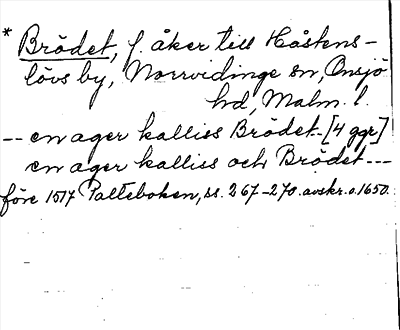 * Brödet, f. åker till Håstens-
lövs by, Norrvidinge sn, Onsjö
hd, Malm. l.
-- en ager kalliss Brödet - [4 ggr]
en ager kalliss och Brödet ---
före 1517 Palteboken, ss. 267-270. avskr. o. 1650.